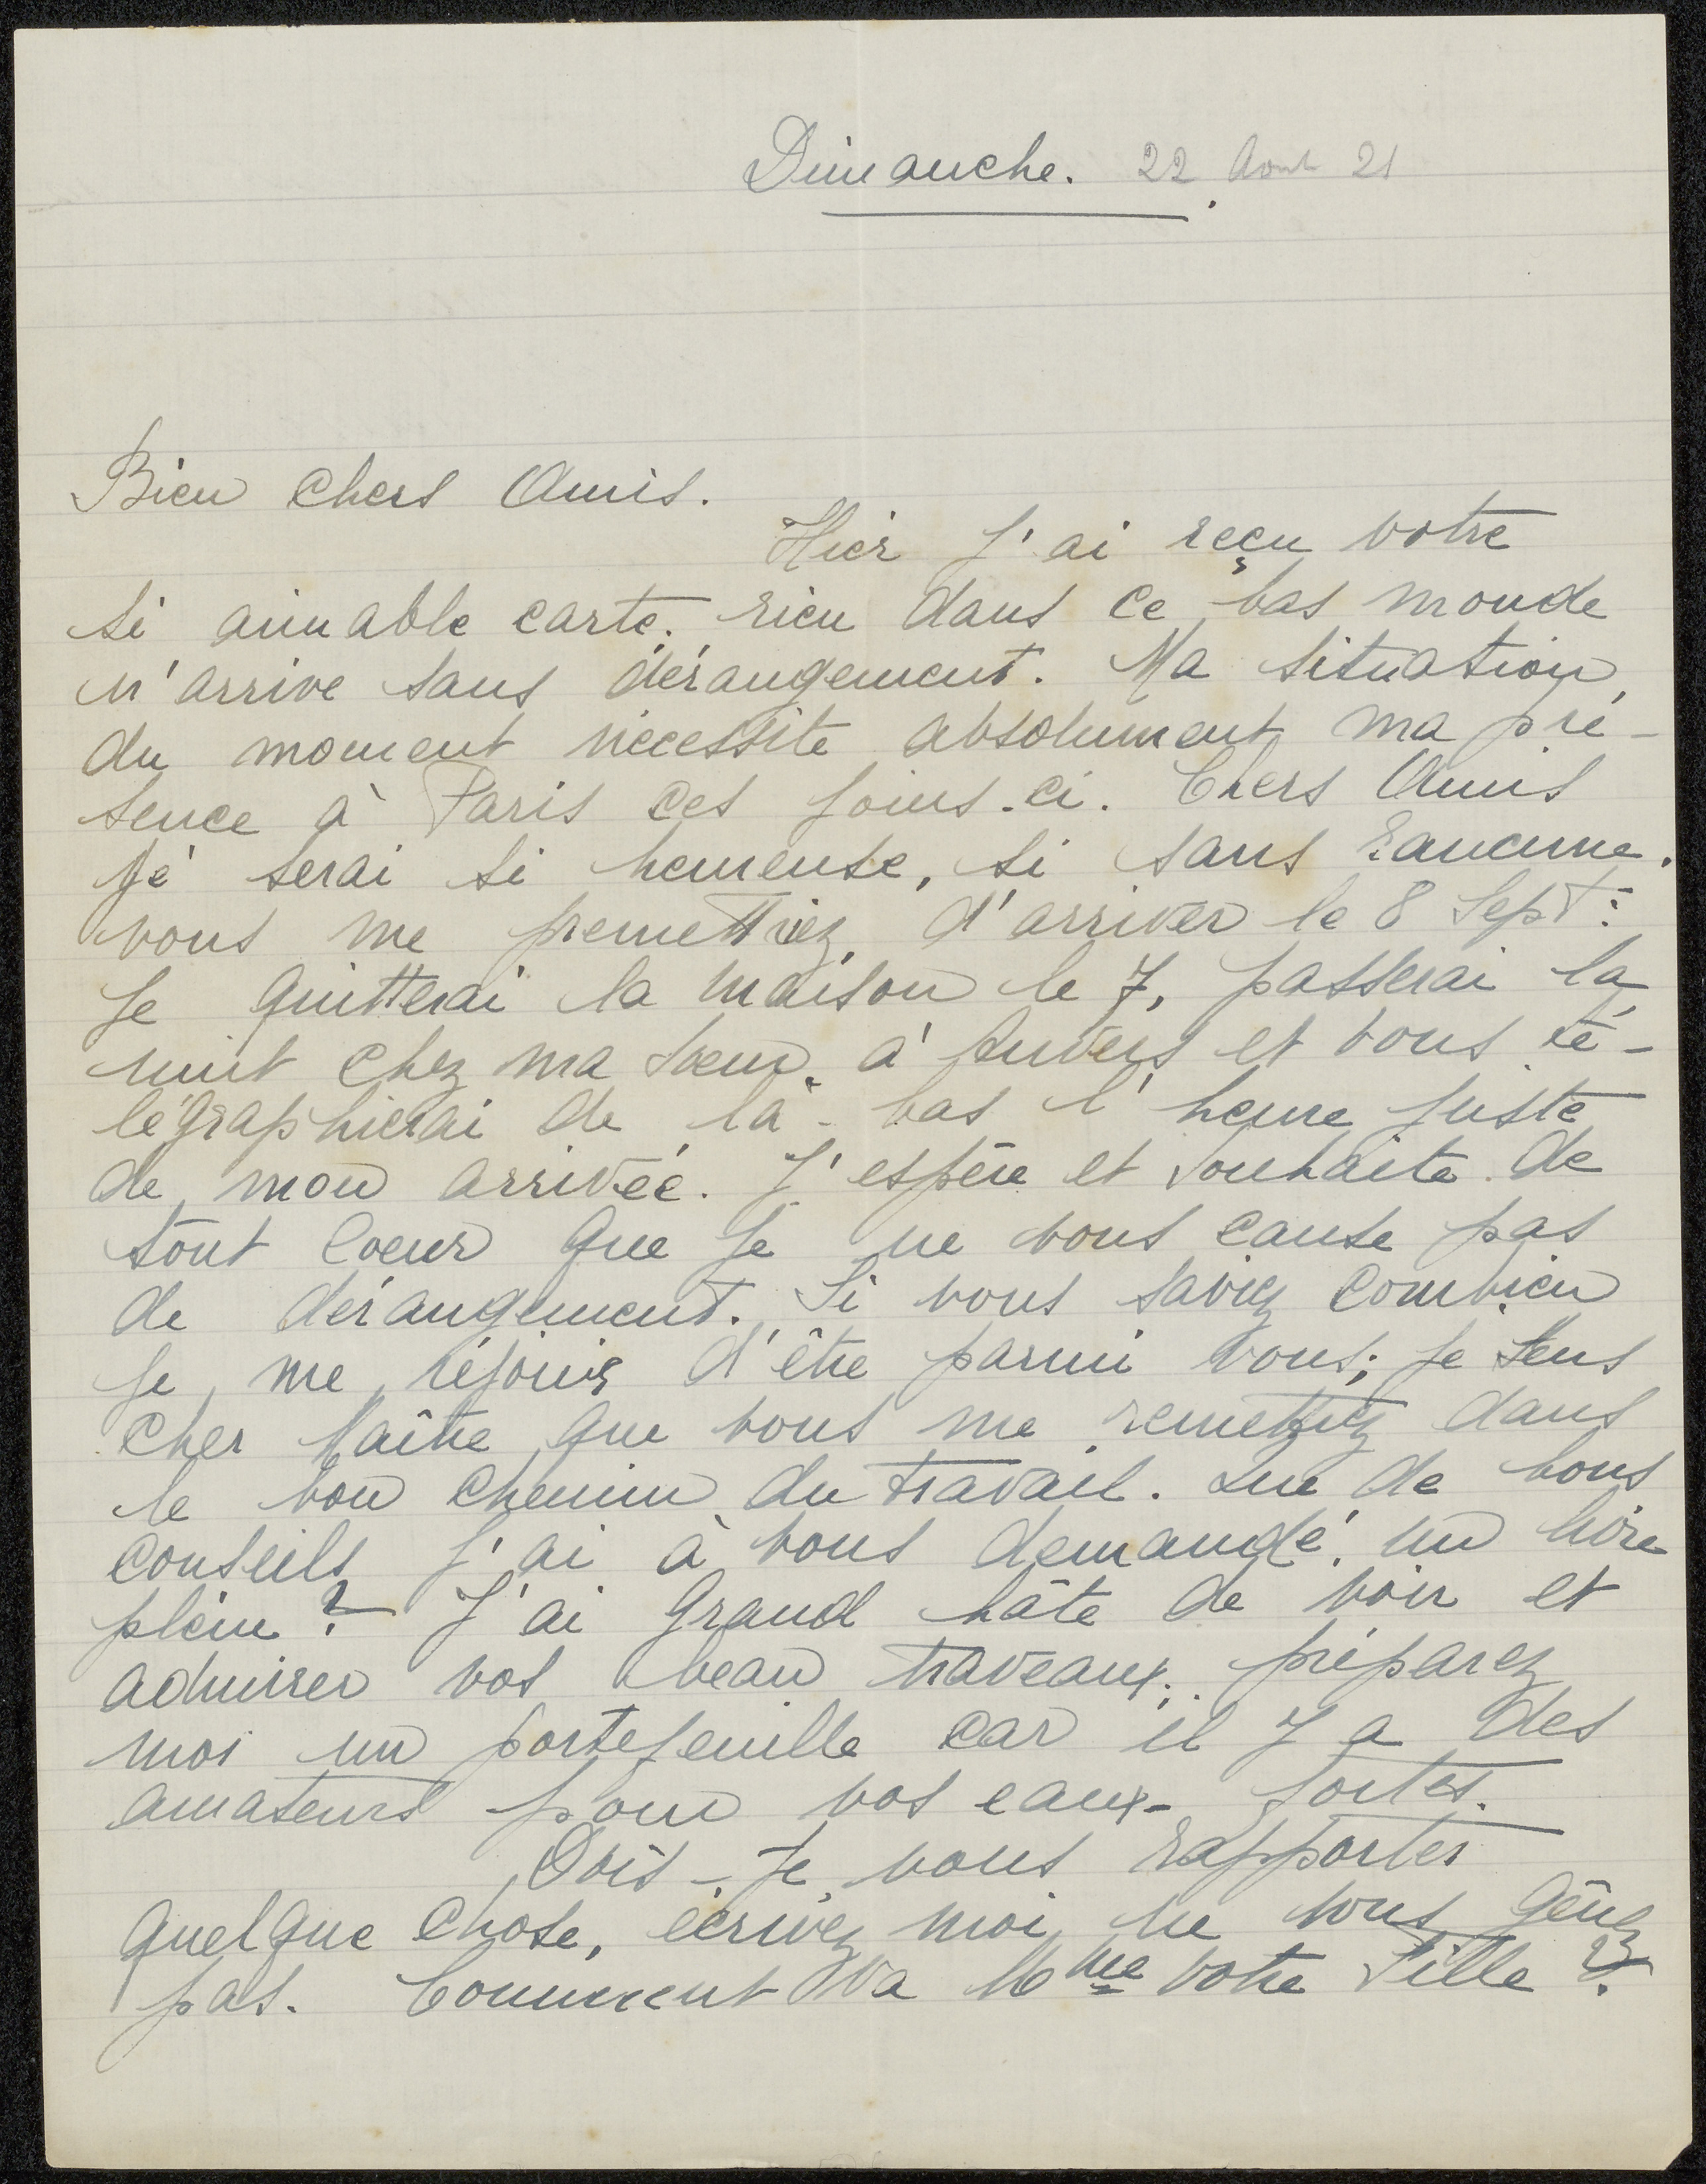 Dimanche. 22 Aout 21
Bien chers Amis.
Hier j'ai reçu votre
si aimable carte. rien dans ce bas monde
n'arrive sans dérangement. Ma situation
du moment nécessite absolument ma pré-
sence à Paris ces jours-ci. Chers Amis
Je serai si heureuse, si sans rancune.
vous me premettriez d'arriver le 8 Sept:
Je quitterai la maison le 7, passerai la
nuit chez ma sœur. à Anvers et vous té-
légraphierai de là-bas l'heure juste
de mon arrivée. J'espère et souhaite de
tout coeur que je ne vous cause pas
de dérangement. Si vous saviez combien
je me réjouis d'être parmi vous; je sens
cher Maître que vous me remettrez dans
le bon chemin du travail. Que de bons
conseils j'ai à vous demandé. un livre
plein? J'ai grand hâte de voir et
admirer vos beau traveaux; préparez
moi un portefeuille car il y a des
amateurs pour vos eaux-fortes.
Dois-je vous rapporter
quelque chose, écrivez moi ne vous gênez
pas. Comment va Mme votre Fille?